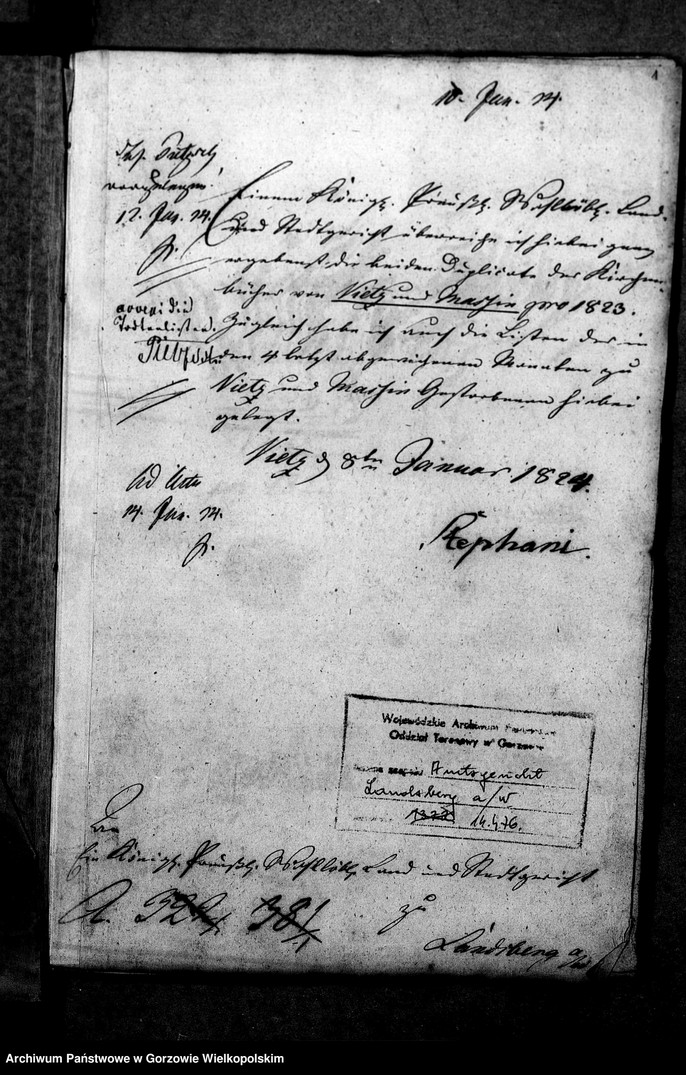 4
10. Jan. 24.
12. Jan. 24.
Einem Königl. Preußl. Wohllöbl. Land-
und Stadtgericht überreiche ich hiebei ganz
ergebenst die beiden Duplicate der Kirchen-
bücher von Vietz und Massin pro 1823.
Zugleich habe ich auch die Listen der in
den 4 letzt abgewichenen Monaten zu
Vietz und Massin Gestorbenen hiebei
gelegt.
Vietz d 8ten Januar 1824.
Stephani.
die
Todtenlisten.
Ad Acta
14. Jan. 24.
Wojewódzkie Archiwum
Oddział Terenowy w Gorzowie
Amtsgericht
Landsberg a/W
14.4.76.
An
Ein Königl. Preußl. Wohllöbl. Land und Stadtgericht
zu
Landsberg a/W
Archiwum Państwowe w Gorzowie Wielkopolskim